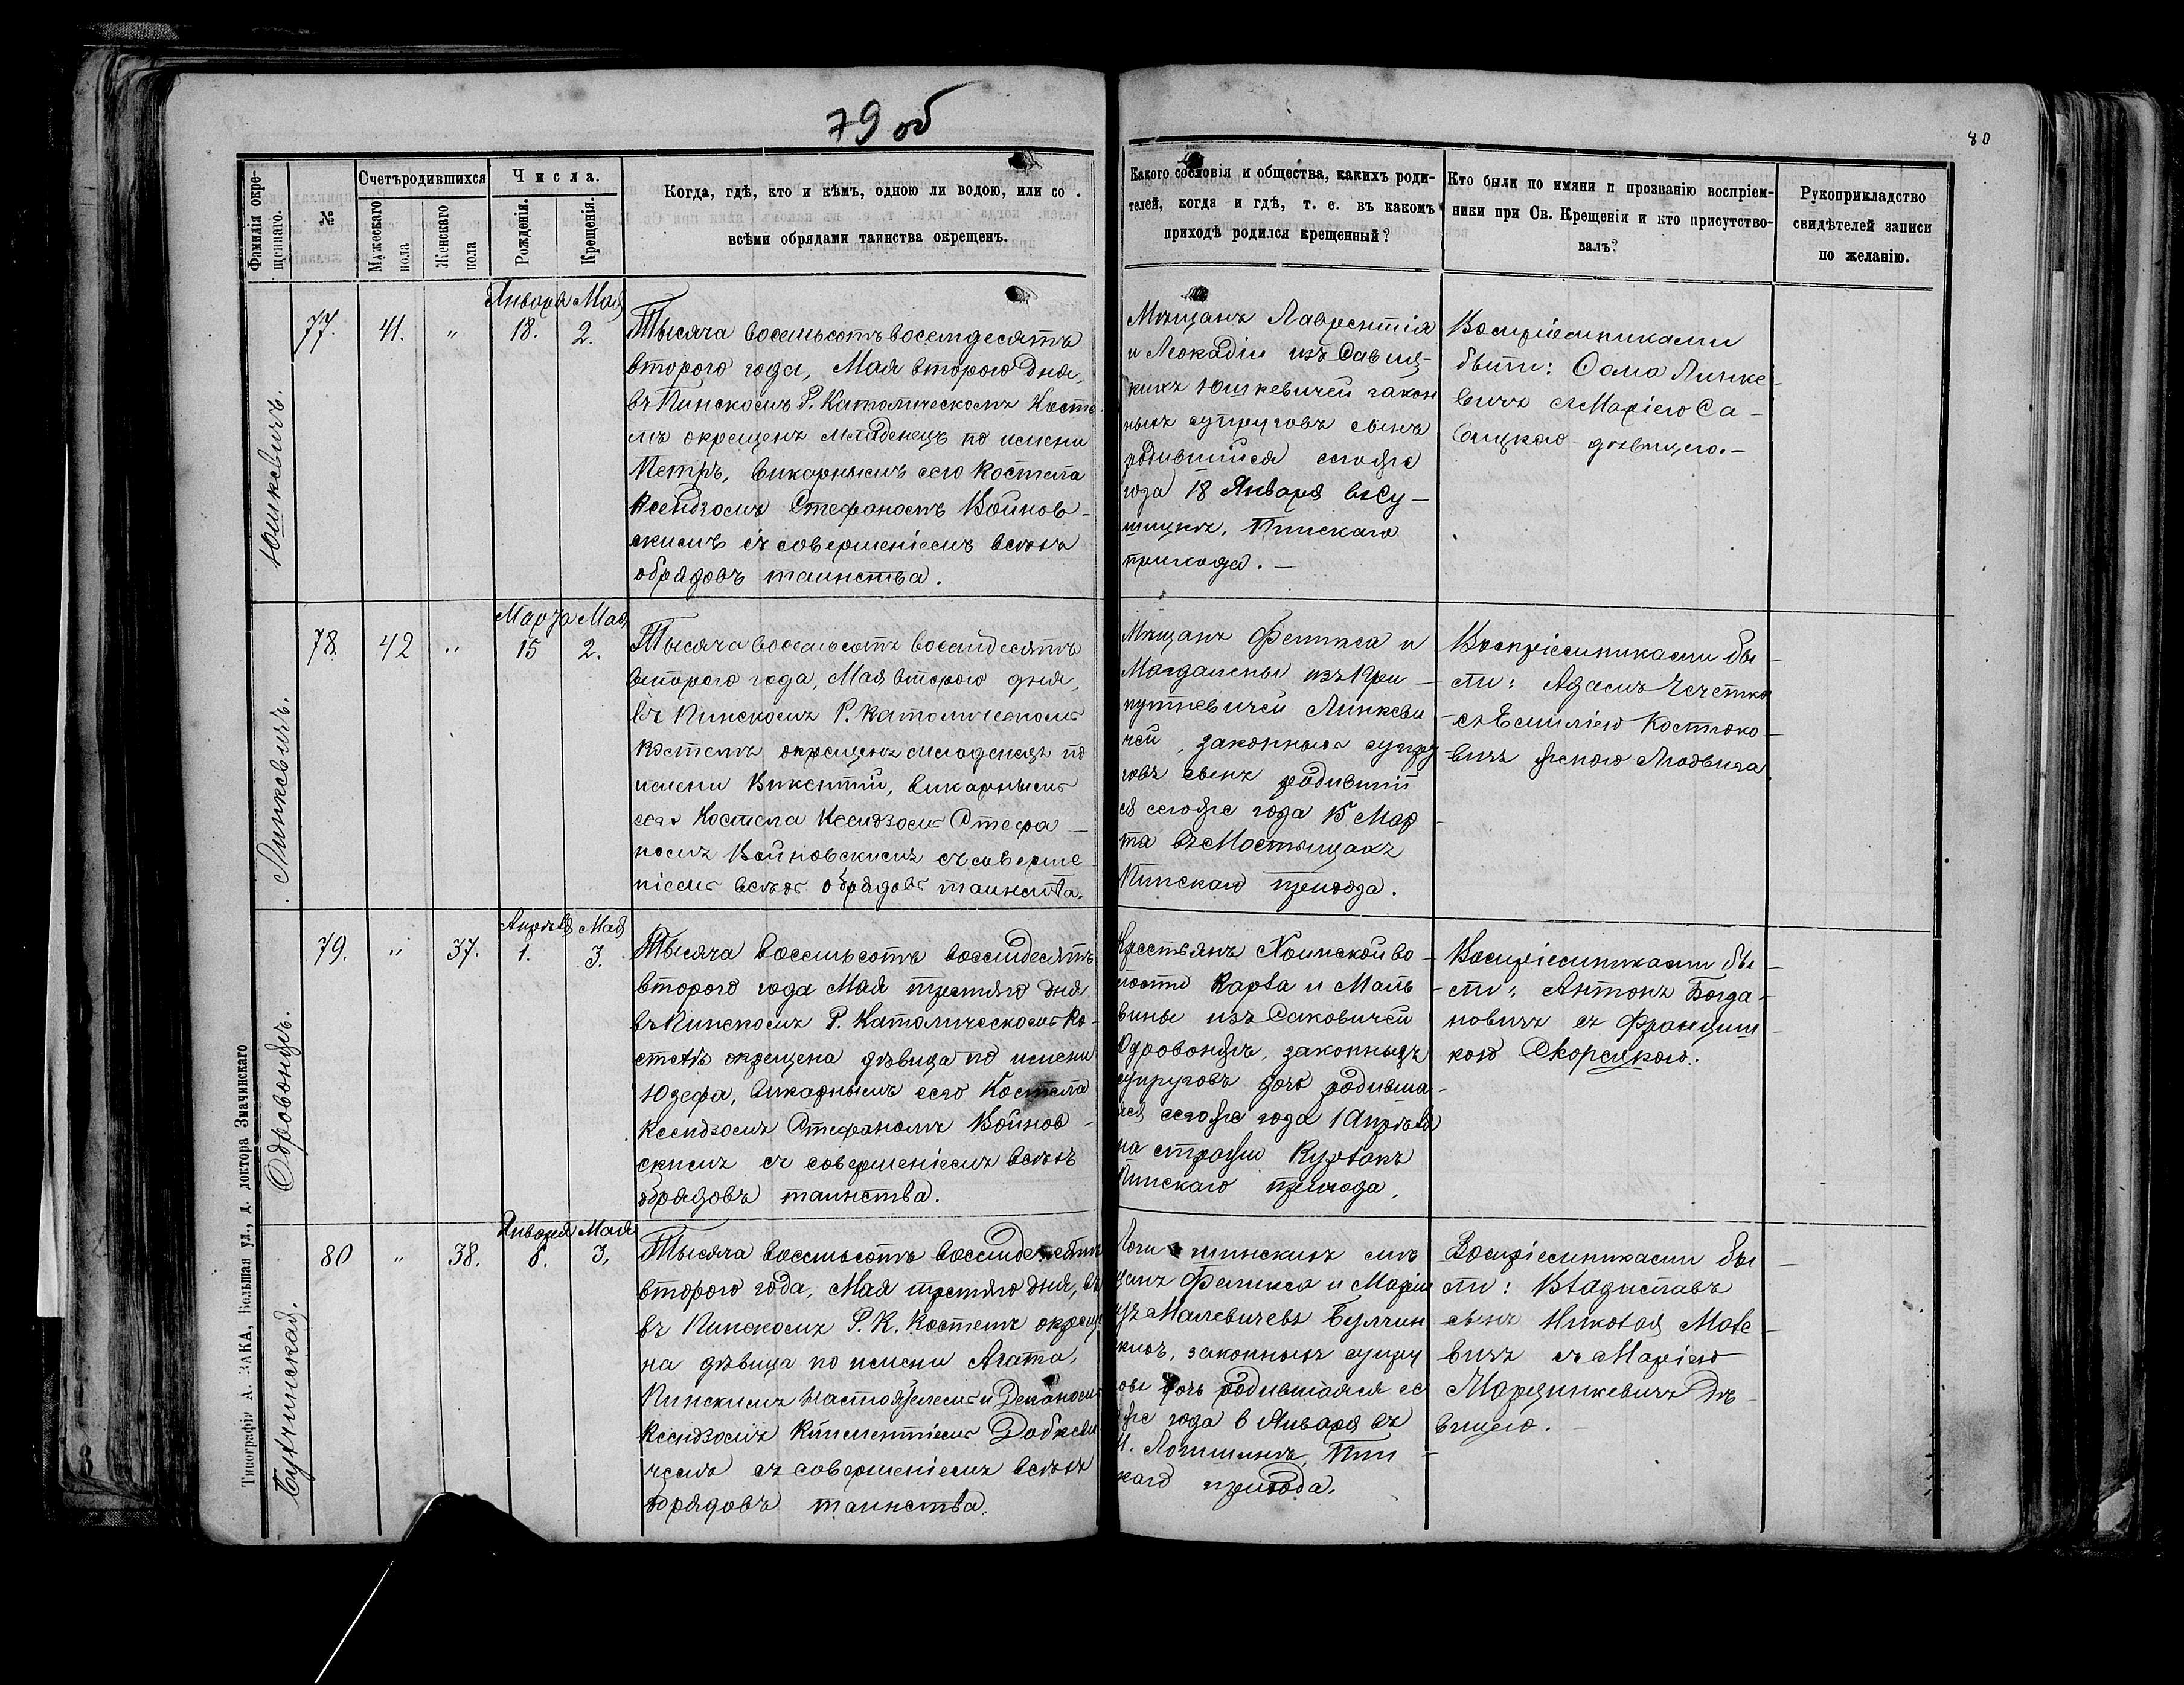 79 об
80
Фамилія окре-
щеннаго.
№
Счетъ родившихся
Мужескаго
пола
Женскаго
пола
Числа.
Рожденія.
Крещенія.
Когда, гдѣ, кто и кѣмъ, одною ли водою, или со
всѣми обрядами таинства окрещенъ.
Какого сословія и общества, какихъ роди-
телей, когда и гдѣ, т. е. въ какомъ
приходѣ родился крещенный?
Кто были по имяни п прозванію воспріем-
ники при Св. Крещеніи и кто присутство-
валъ?
Рукоприкладство
свидѣтелей записи
по желанію.
Юшкевичъ.
77.
41.
"
Января Мая
18. 2.
Тысяча восемьсотъ восемдесятъ
второго года, Мая второго дня,
въ Пинскомъ Р. Католическомъ Косте-
лѣ окрещенъ младенецъ по имени
Петръ, викарнымъ сего Костела
Ксендзомъ Стефаномъ Войнов-
скимъ съ совершеніемъ всѣхъ
обрядовъ таинства.
Мѣщанъ Лаврентія
и Леокадіи изъ Савиц-
кихъ Юшкевичей закон
ныхъ супруговъ сынъ
родившійся сегоже
года 18 Января въ Су-
шицкъ, Пинскаго
прихода.—
Воспріемниками
были: Ѳома Линке-
вичъ съ Маріею Са-
вицкою дѣвицею.—
Линкевичъ.
78.
42
"
Марта Мая
15 2.
Тысяча восемьсотъ восемдесятъ
второго года, Мая второго дня,
въ Пинскомъ Р. Католическомъ
Костелѣ окрещенъ младенецъ по
имени Викентій, викарнымъ
сего Костела Ксендзомъ Стефа-
номъ Войновскимъ съ соверше-
ніемъ всѣхъ обрядовъ таинства.
Мѣщанъ Феликса и
Магдалены изъ Кри-
путневичей Линкеви
чей, законныхъ супру
говъ сынъ родившій
ся сегоже года 15 Мар-
та въ Мостыщахъ
Пинскаго прихода.
Воспріемниками бы-
ли: Адамъ
съ Емиліею Костюко-
вичъ женою Людвига
Одровонжъ.
79.
"
37.
Апрѣля Мая
1. 3.
Тысяча восемьсотъ восемдесятъ
второго года Мая третяго дня
въ Пинскомъ Р. Католическомъ Ко-
стелѣ окрещена дѣвица по имени
Юзефа, викарнымъ сего Костела
Ксендзомъ Стефаномъ Войнов-
скимъ съ совершеніемъ всѣхъ
обрядовъ таинства.
Крестьянъ Хоинской во-
лости Карла и Маль-
вины изъ Саковичей
Одровонжъ, законныхъ
супруговъ дочь родивша-
яся сегоже года 1 Апрѣля
на стражи Курланъ
Пинскаго прихода,
Воспріемниками бы-
ли: Антонъ Богда-
новичъ съ Францишъ-
кою Скорецкою.
Булчинская.
80
"
38.
Января Мая
6. 3.
Тысяча восемьсотъ восемдесятъ
второго года, Мая третяго дня, въ
въ Пинскомъ Р. К. Костелѣ окреще
на дѣвица по имени Агата,
Пинскимъ Настоятелемъ и Деканомъ
Ксендзомъ Климентіемъ Добкеви
чемъ съ совершеніемъ всѣхъ
обрядовъ таинства.
Логишинскихъ мѣ
щанъ Феликса и Маріи
изъ Малевичевъ Булчин
кихъ, законныхъ супру
овъ дочь родившаяся се
оже года 6 Января въ
М. Логишинѣ, Пин-
каго прихода.
Воспріемниками бы-
ли: Владиславъ
сынъ Николая Мале-
вичъ съ Маріею
Марцинкевичъ Дѣ-
вицею.—
Типографія А. ЗАКА, Большая ул., д. доктора Змачинскаго